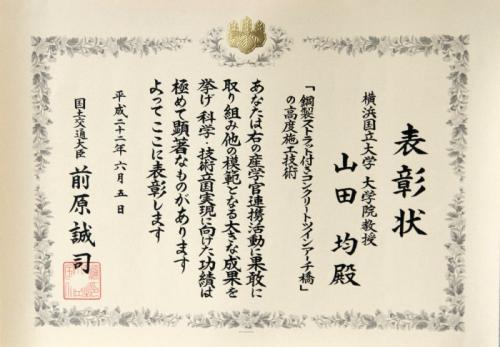 表彰状
横浜国立大学 大学院教授
山田 均殿
「鋼製ストラット付きコンクリートツインアーチ橋」
の高度施工技術
あなたは右の産学官連携活動に果敢に
取り組み他の模範となる大きな成果を
挙げ 科学・技術立国実現に向けた功績は
極めて顕著なものがあります
よってここに表彰します
平成二十二年六月五日
国土交通大臣 前原誠司